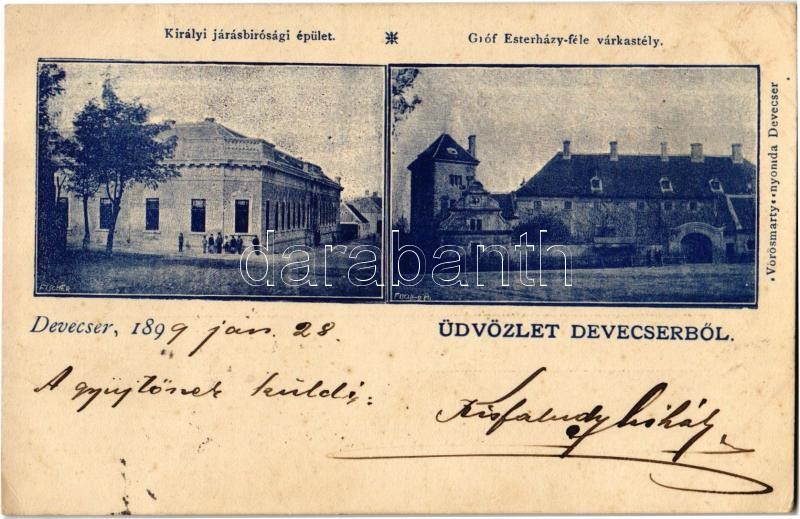 Királyi járásbirósági épület.
Gróf Esterházy-féle várkastély.
FISCHER
darabanth
•Vörösmarty•-nyomda Devecser
Devecser, 1899 jan. 28.
ÜDVÖZLET DEVECSERBŐL.
A gyüjtőnek küldi:
Kisfaludy Mihály